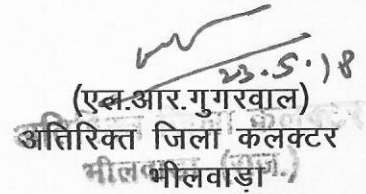 23.5.18
(एल.आर.गुगरवाल)
अतिरिक्त जिला कलक्टर
भीलवाड़ा